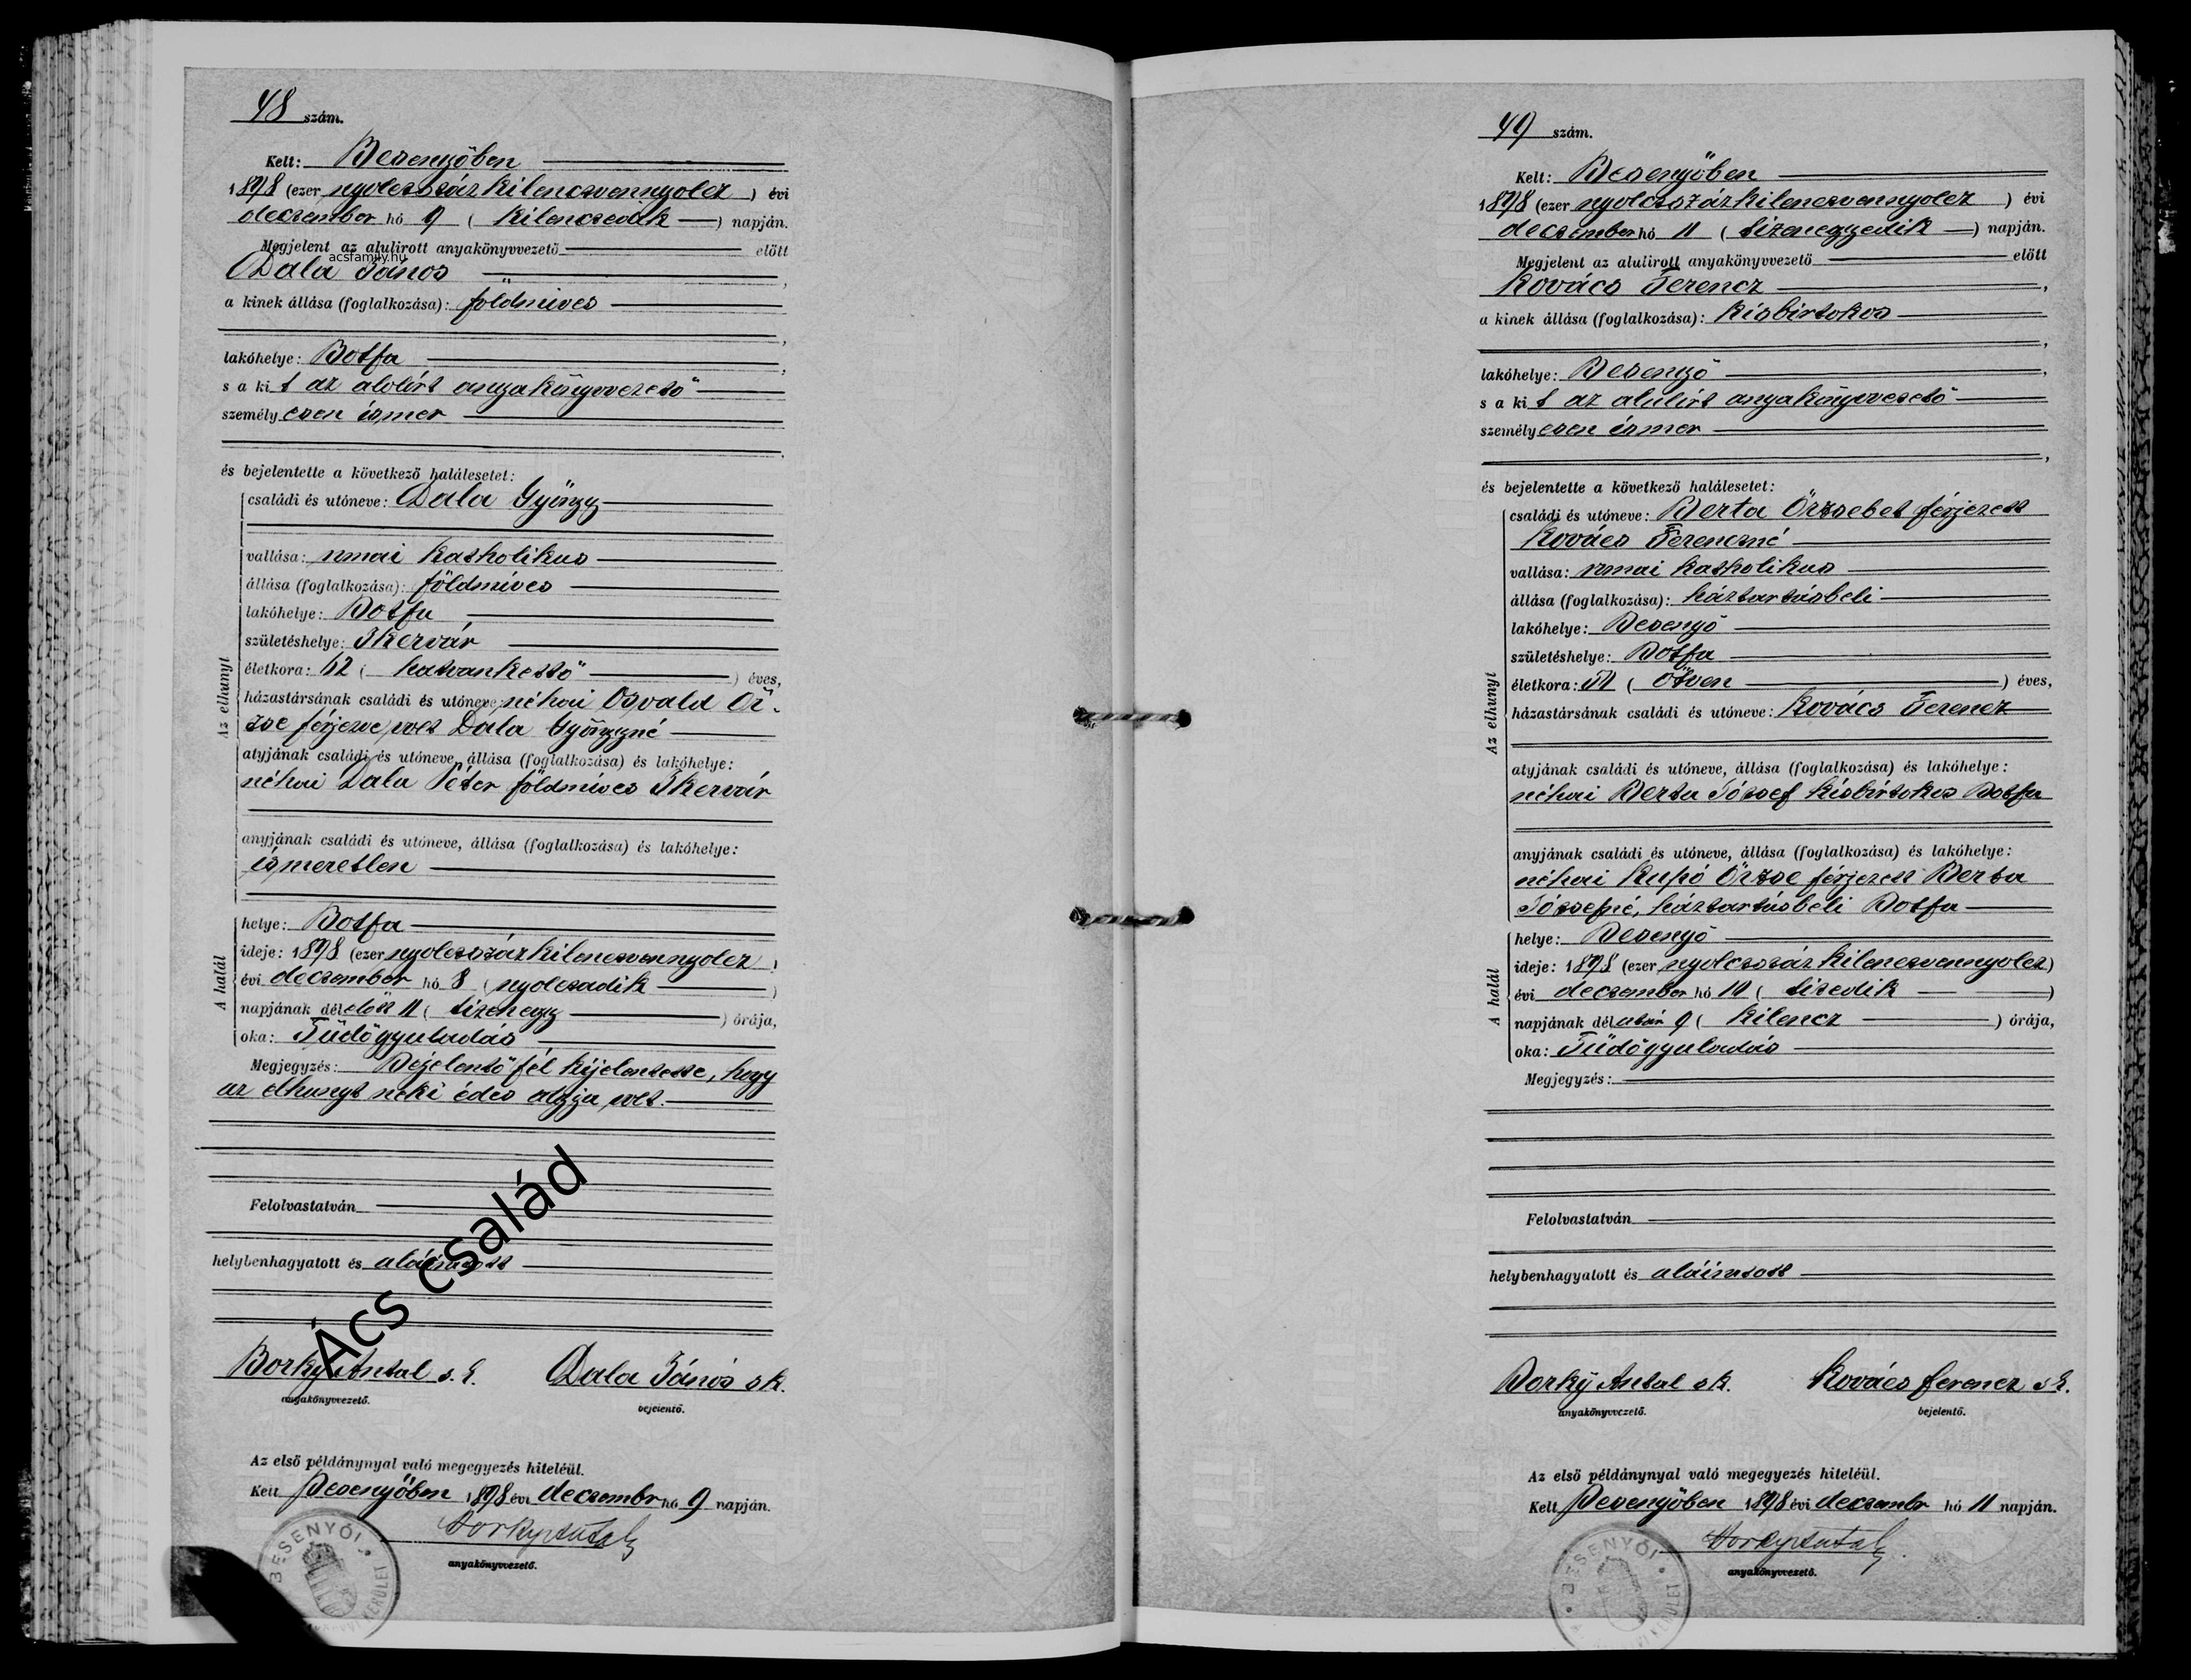 48 szám.
Kelt: Besenyőben
1898 (ezer nyolcszázkilenczvennyolcz) évi
deczember hó 9 (kilenczedik) napján.
Megjelent az alulirott anyakönyvvezető előtt
acsfamily.hu
Dala János,
a kinek állása (foglalkozása): földmíves
,
lakóhelye: Botfa,
s a kit az alolírt anyakönyvvezető
személyesen ismer
.
és bejelentette a következő halálesetet:
Az elhunyt
családi és utóneve: Dala György
vallása: római katholikus
állása (foglalkozása): földmíves
lakóhelye: Botfa
születéshelye: Ikervár
életkora: 62 (hatvankettő) éves,
házastársának családi és utóneve: néhai Osvald Ör-
zse férjezve volt Dala Györgyné
atyjának családi és utóneve, állása (foglalkozása) és lakóhelye:
néhai Dala Péter földmíves Ikervár
anyjának családi és utóneve, állása (foglalkozása) és lakóhelye:
ismeretlen
A halál
helye: Botfa
ideje: 1898 (ezer nyolcszázkilenczvennyolcz)
évi deczember hó 8 (nyolczadik)
napjának délelőtt 11 (tizenegy) órája,
oka: Tüdőgyuladás
Megjegyzés: Bejelentő fél kijelentette, hogy
az elhunyt neki édes atyja volt.
Felolvastatván
helybenhagyatott és aláiratott
Ács család
Borky Antal s. k. Dala János sk.
anyakönyvvezető. bejelentő.
Az első példánynyal való megegyezés hiteléül.
Kelt Besenyőben 1898 évi decembr hó 9 napján.
Borky Antal
anyakönyvvezető.
BESENYŐI KERÜLET
49 szám.
Kelt: Besenyőben
1898 (ezer nyolcszázkilenczvennyolcz) évi
deczember hó 11 (tizenegyedik) napján.
Megjelent az alulirott anyakönyvvezető előtt
Kovács Ferencz,
a kinek állása (foglalkozása): kisbirtokos
,
lakóhelye: Besenyő,
s a kit az alulírt anyakönyvvezető
személyesen ismer
,
és bejelentette a következő halálesetet:
Az elhunyt
családi és utóneve: Berta Örzsebet férjezett
Kovács Ferenczné
vallása: római katholikus
állása (foglalkozása): háztartásbeli
lakóhelye: Besenyő
születéshelye: Botfa
életkora: 50 (ötven) éves,
házastársának családi és utóneve: Kovács Ferencz
atyjának családi és utóneve, állása (foglalkozása) és lakóhelye:
néhai Berta József kisbirtokos Botfa
anyjának családi és utóneve, állása (foglalkozása) és lakóhelye:
néhai Kupó Örzse férjezett Berta
Józsefné, háztartásbeli Botfa
A halál
helye: Besenyő
ideje: 1898 (ezer nyolcszázkilenczvennyolcz)
évi deczember hó 10 (tizedik)
napjának délután 9 (kilencz) órája,
oka: Tüdőgyuladás
Megjegyzés:
Felolvastatván
helybenhagyatott és aláiratott
Borky Antal sk. Kovács Ferencz sk.
anyakönyvvezető. bejelentő.
Az első példánynyal való megegyezés hiteléül.
Kelt Besenyőben 1898 évi decembr hó 11 napján.
Borky Antal
anyakönyvvezető.
BESENYŐI